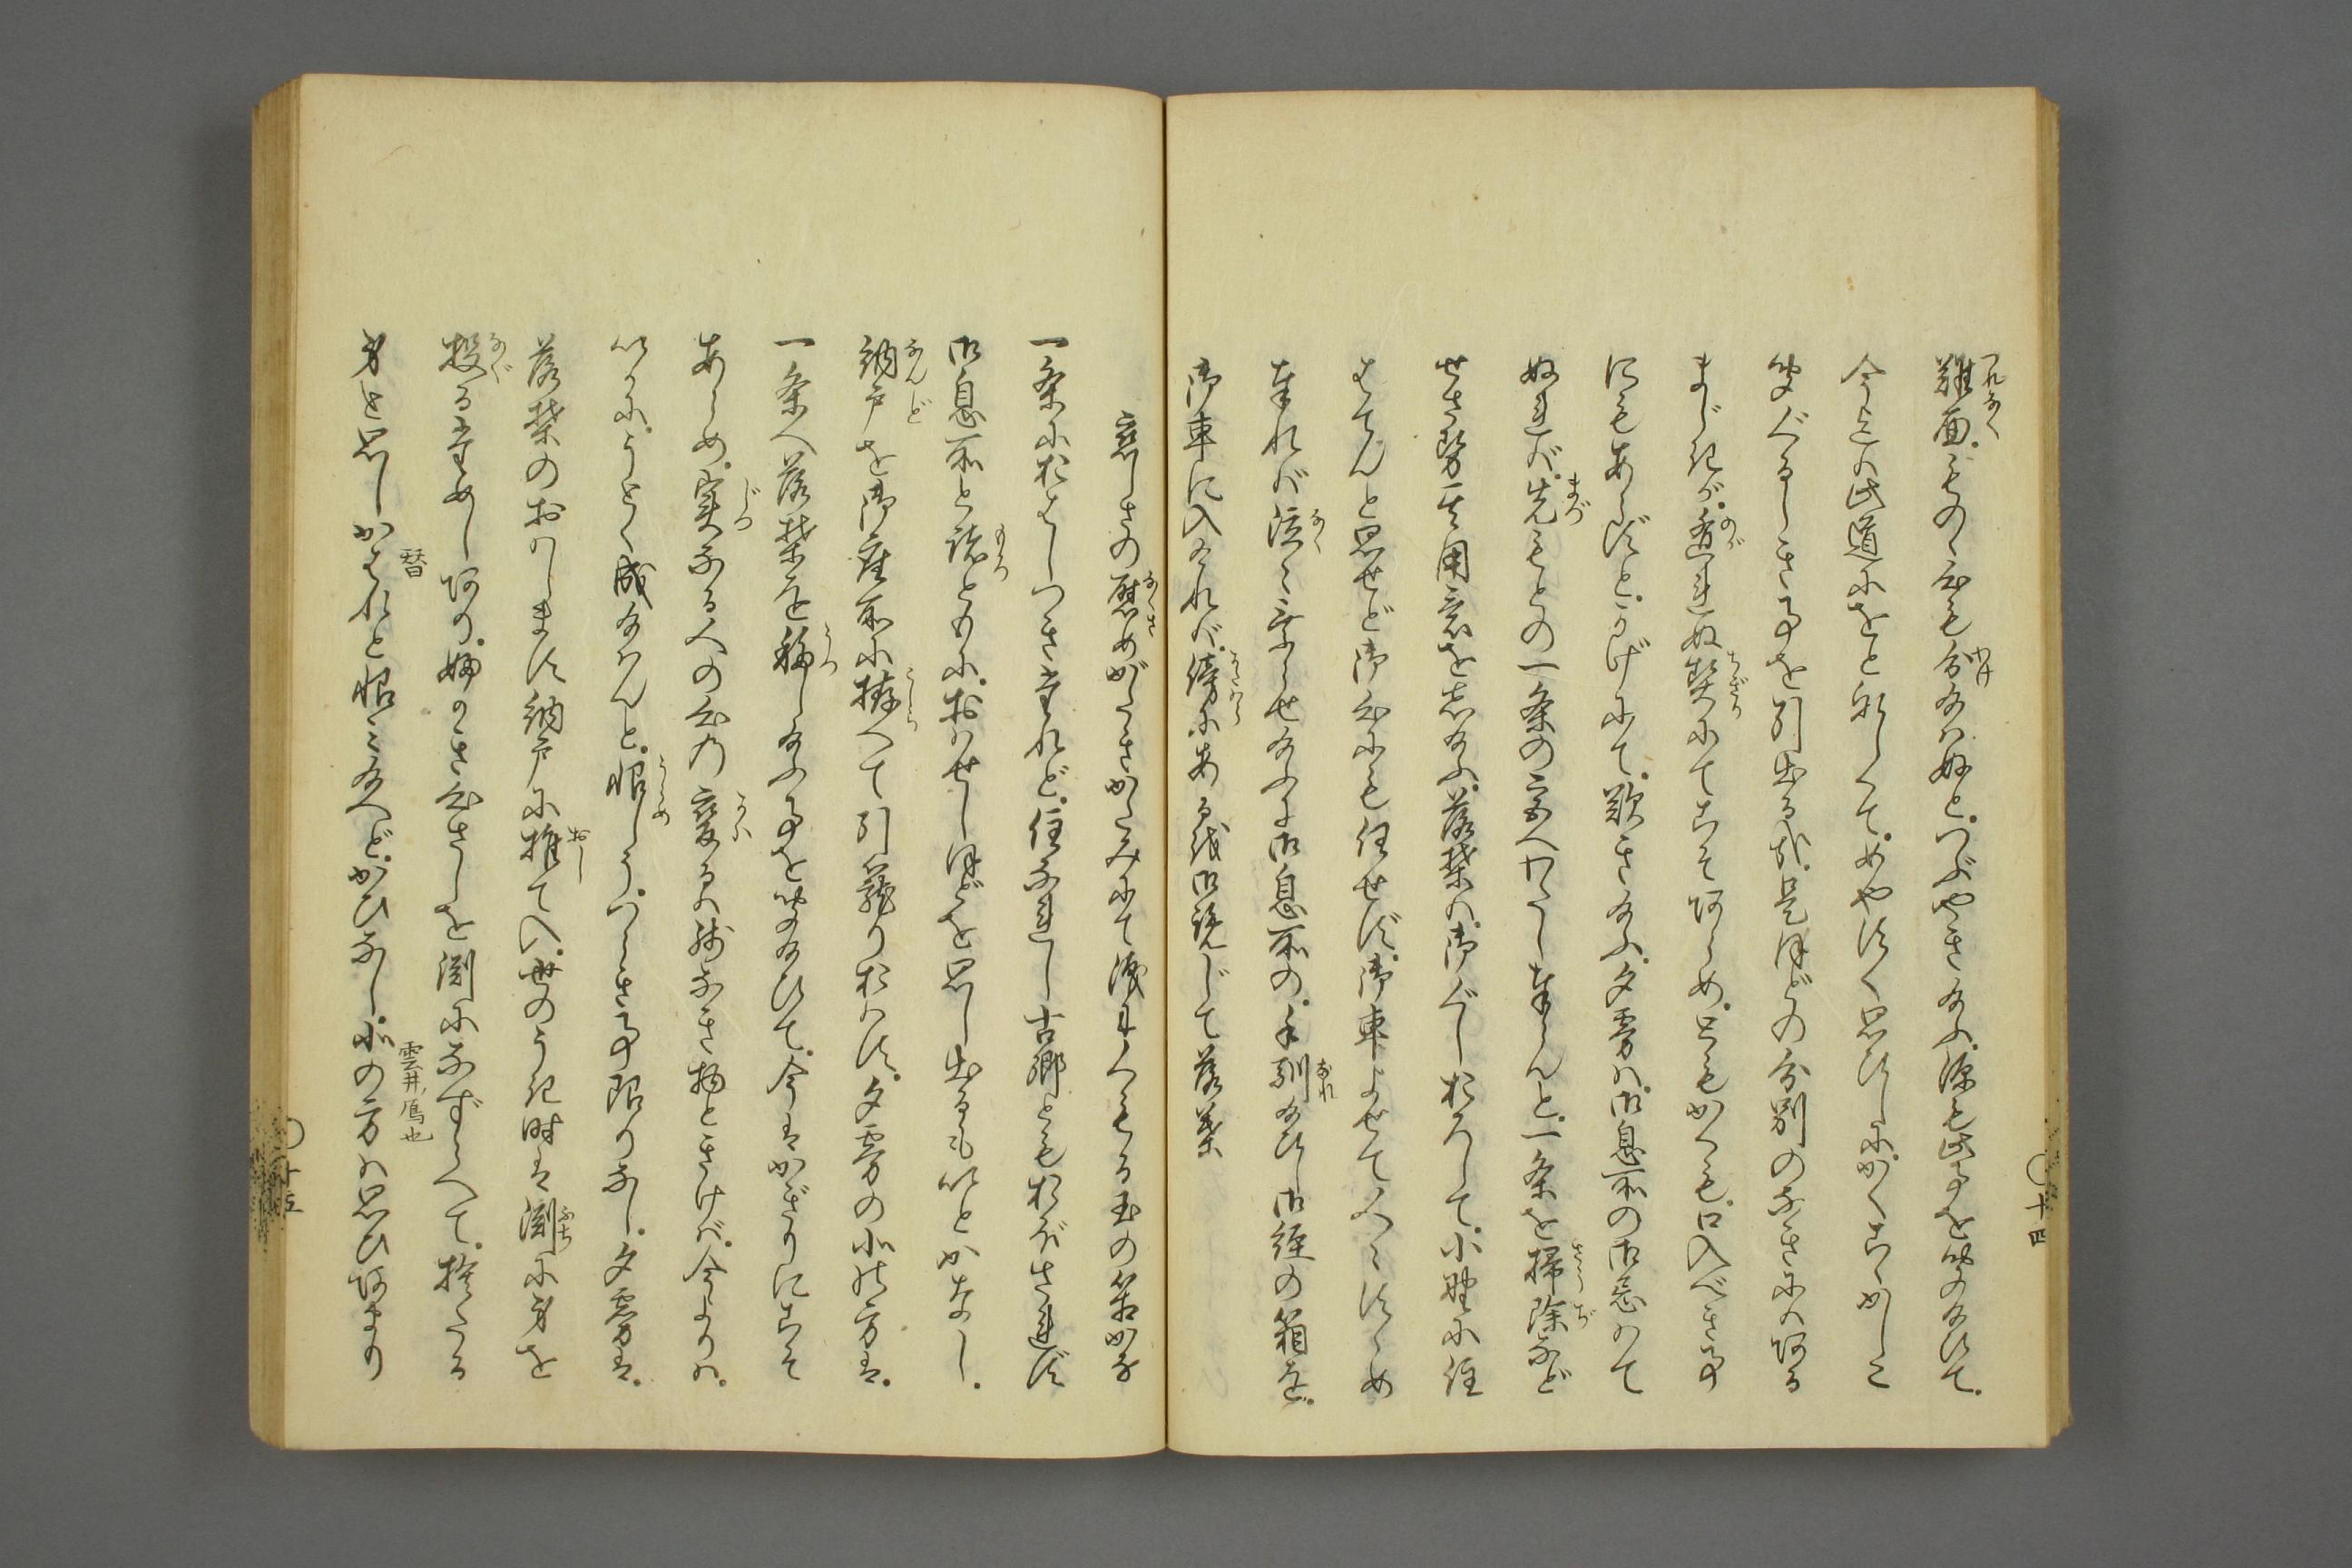 難面。ものゝ心も分給はぬと。つぶやき給ふ。源も此事を聞給ひて。
今迄は此道にをとなしくて。めやすく思ひしに。かくこゝかしこ
聞ぐるしき事を引出るが。是ほどの分別のなきにはある
まじきが。遁れぬ契にてこそあらめ。ともかくも。口入べき事
にもあらずと。かげにて。歎き給ふ。夕霧は。御息所の御忌はて
ぬれば。先もとの一条の宮へわたし奉らんと。一条を掃除など
せさせ。用意を
落葉は。御ぐしおろして。小野に住
はてんと思せど。御心にも任せず。御車よせて
奉れば。泣々乗らせ給ふに。御息所の。手馴給ひし御経の箱を。
御車に入ければ。傍にあるを御覧じて。落葉
恋しさの慰めがたきかたみにて涙にくもる玉の筥かな
一条におはしつきたれど。住なれし古郷とも おぼされず
御息所と諸ともに。おはせしほどを思し出るもいとかなし。
納戸を御座所に拵へて引籠りおはす。夕霧の北の方は。
一条へ落葉を移し給ふ事を聞給ひて。今はかぎりにこそ
あらめ。実なる人の心の変るは
なき物ときけば。今よりは。
いかに。うとく成給はんと。恨しう。つらき事限りなし。夕霧は。
落葉のおはします納戸に推て入。世のうき時は淵に身を
投るためしあり。
を淵になずらへて。捨たる
身と思しかはれと恨み給へど。かひなし。北の方は思ひあまり
つれなく
わけ
のが
ちぎり
まづ
さうぢ
なく
なれ
かたはら
なぐさ
もろ
なんど
こしら
うつ
じつ
かは
うらめ
おし
ふち
なぐ
替
雲井ノ鴈也
十四
十五